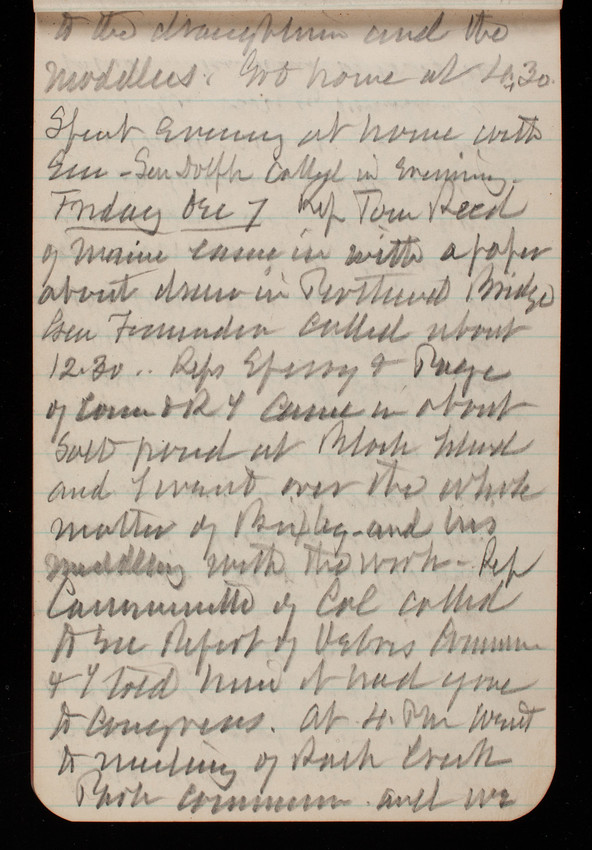 to the draughtsmen and the
modellers. Got home at 4.30.
Spent Evening at home with
Em - Gen Dolph called in Evening.
Friday Dec 7 Rep Tom Reed
of Maine came in with a paper
about draw in Portland Bridge
Gen called about
12.30.. Reps & Page
of Conn & R I came in about
Salt pond at Block Island
and I went over the whole
matter of and his
meddling with the work - Rep
of Cal called
to see Report of Debris Commn
& I told him it had gone
to Congress. At 4. PM went
to meeting of Rock Creek
Park commission and we